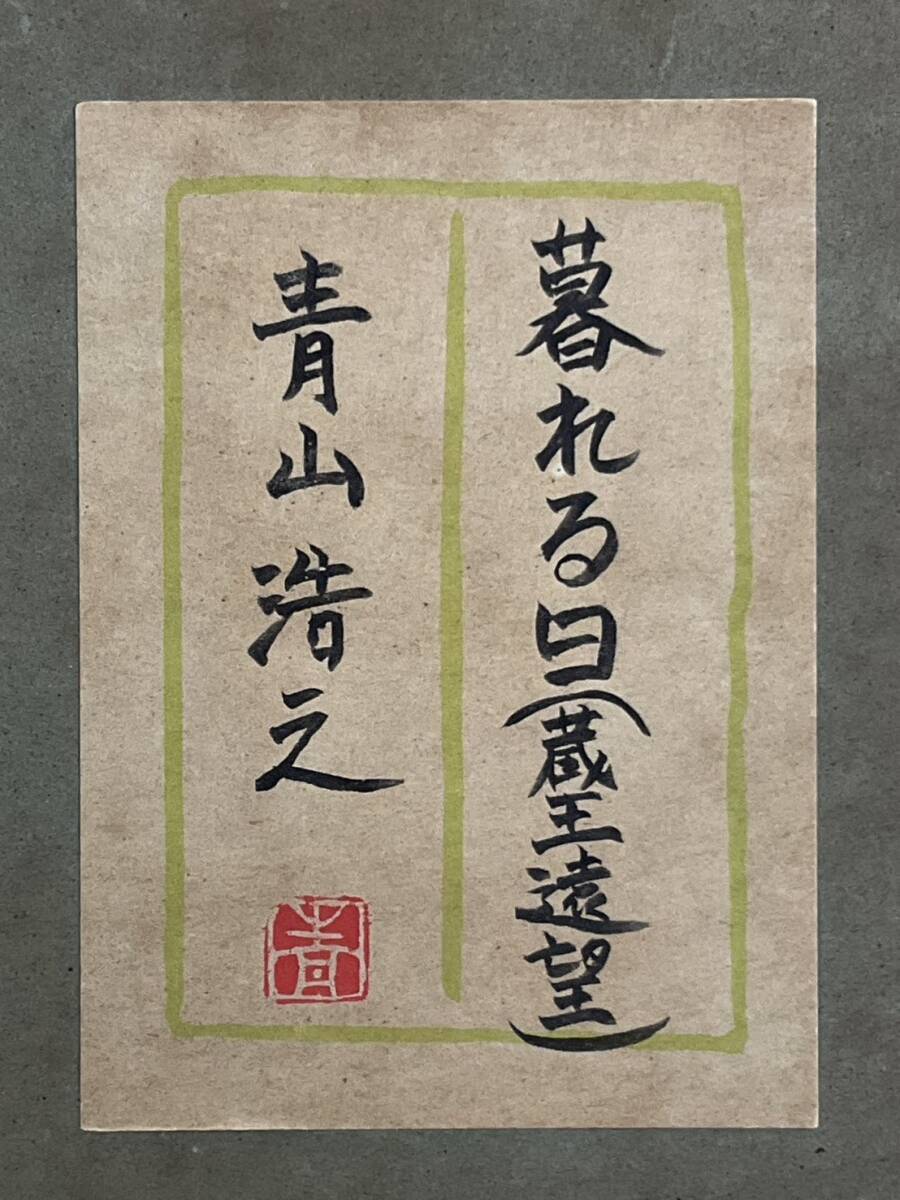 暮れる日(蔵王遠望)
青山浩之
青